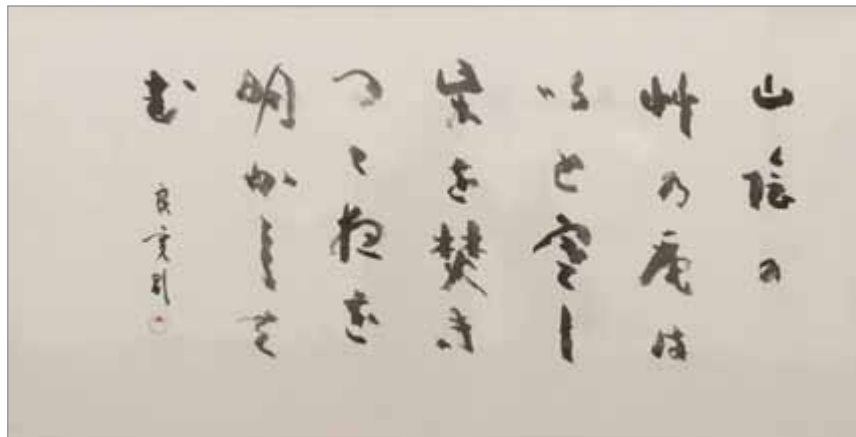 山陰の
艸の庵は
いと寒し
柴を焚き
つゝ夜を
明かして
む 良寛